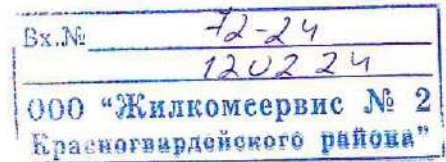 Вх.№ 72-24
120224
ООО "Жилкомсервис № 2
Красногвардейского района"